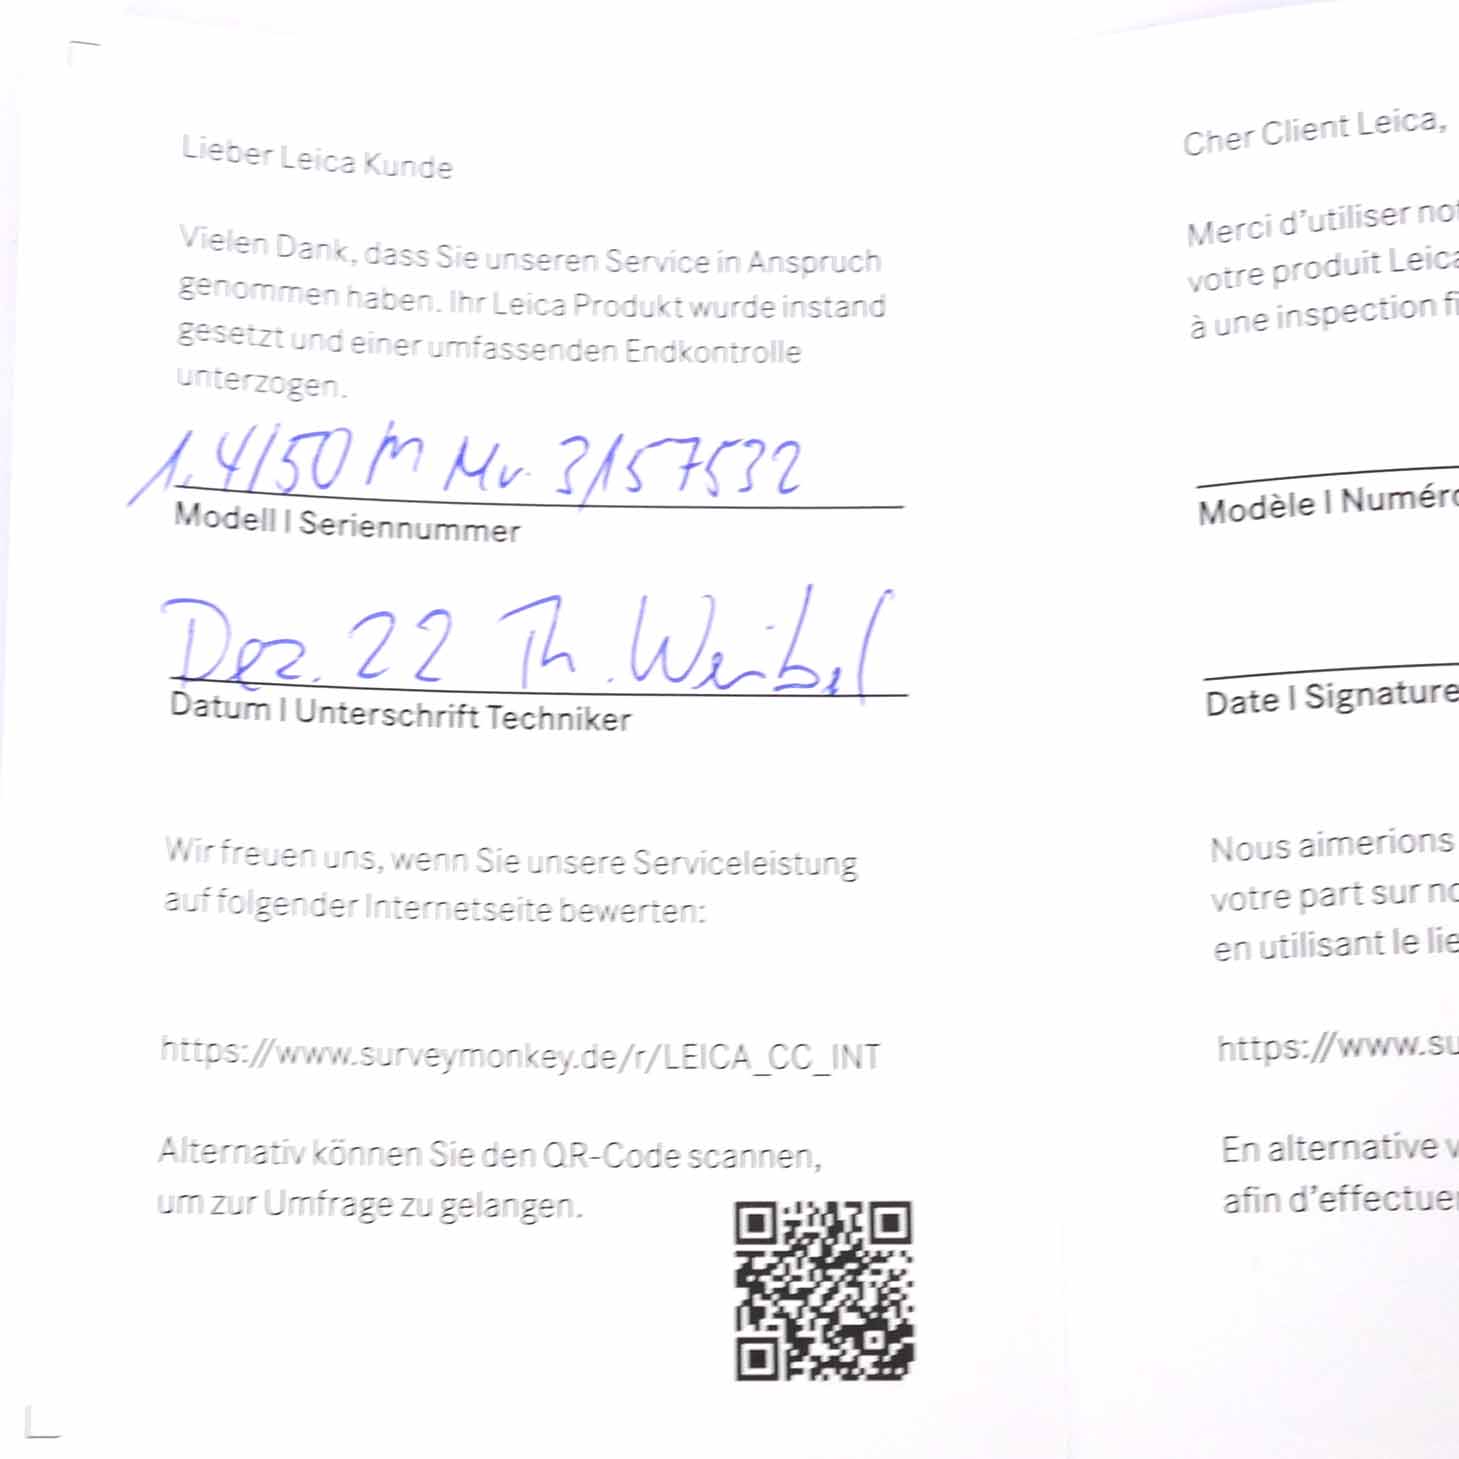 Lieber Leica Kunde
Vielen Dank, dass Sie unseren Service in Anspruch
genommen haben. Ihr Leica Produkt wurde instand
gesetzt und einer umfassenden Endkontrolle
unterzogen.
1.4/50 M Nr. 3157532
Modell | Seriennummer
Dez. 22 Th. Weibel
Datum | Unterschrift Techniker
Wir freuen uns, wenn Sie unsere Serviceleistung
auf folgender Internetseite bewerten:
https://www.surveymonkey.de/r/LEICA_CC_INT
Alternativ können Sie den QR-Code scannen,
um zur Umfrage zu gelangen.
Cher Client Leica,
Merci d'utiliser
votre produit Leica
à une inspection
Modèle | Numéro
Date | Signature
Nous aimerions
votre part sur
en utilisant le
https://www.su
En alternative
afin d'effectuer